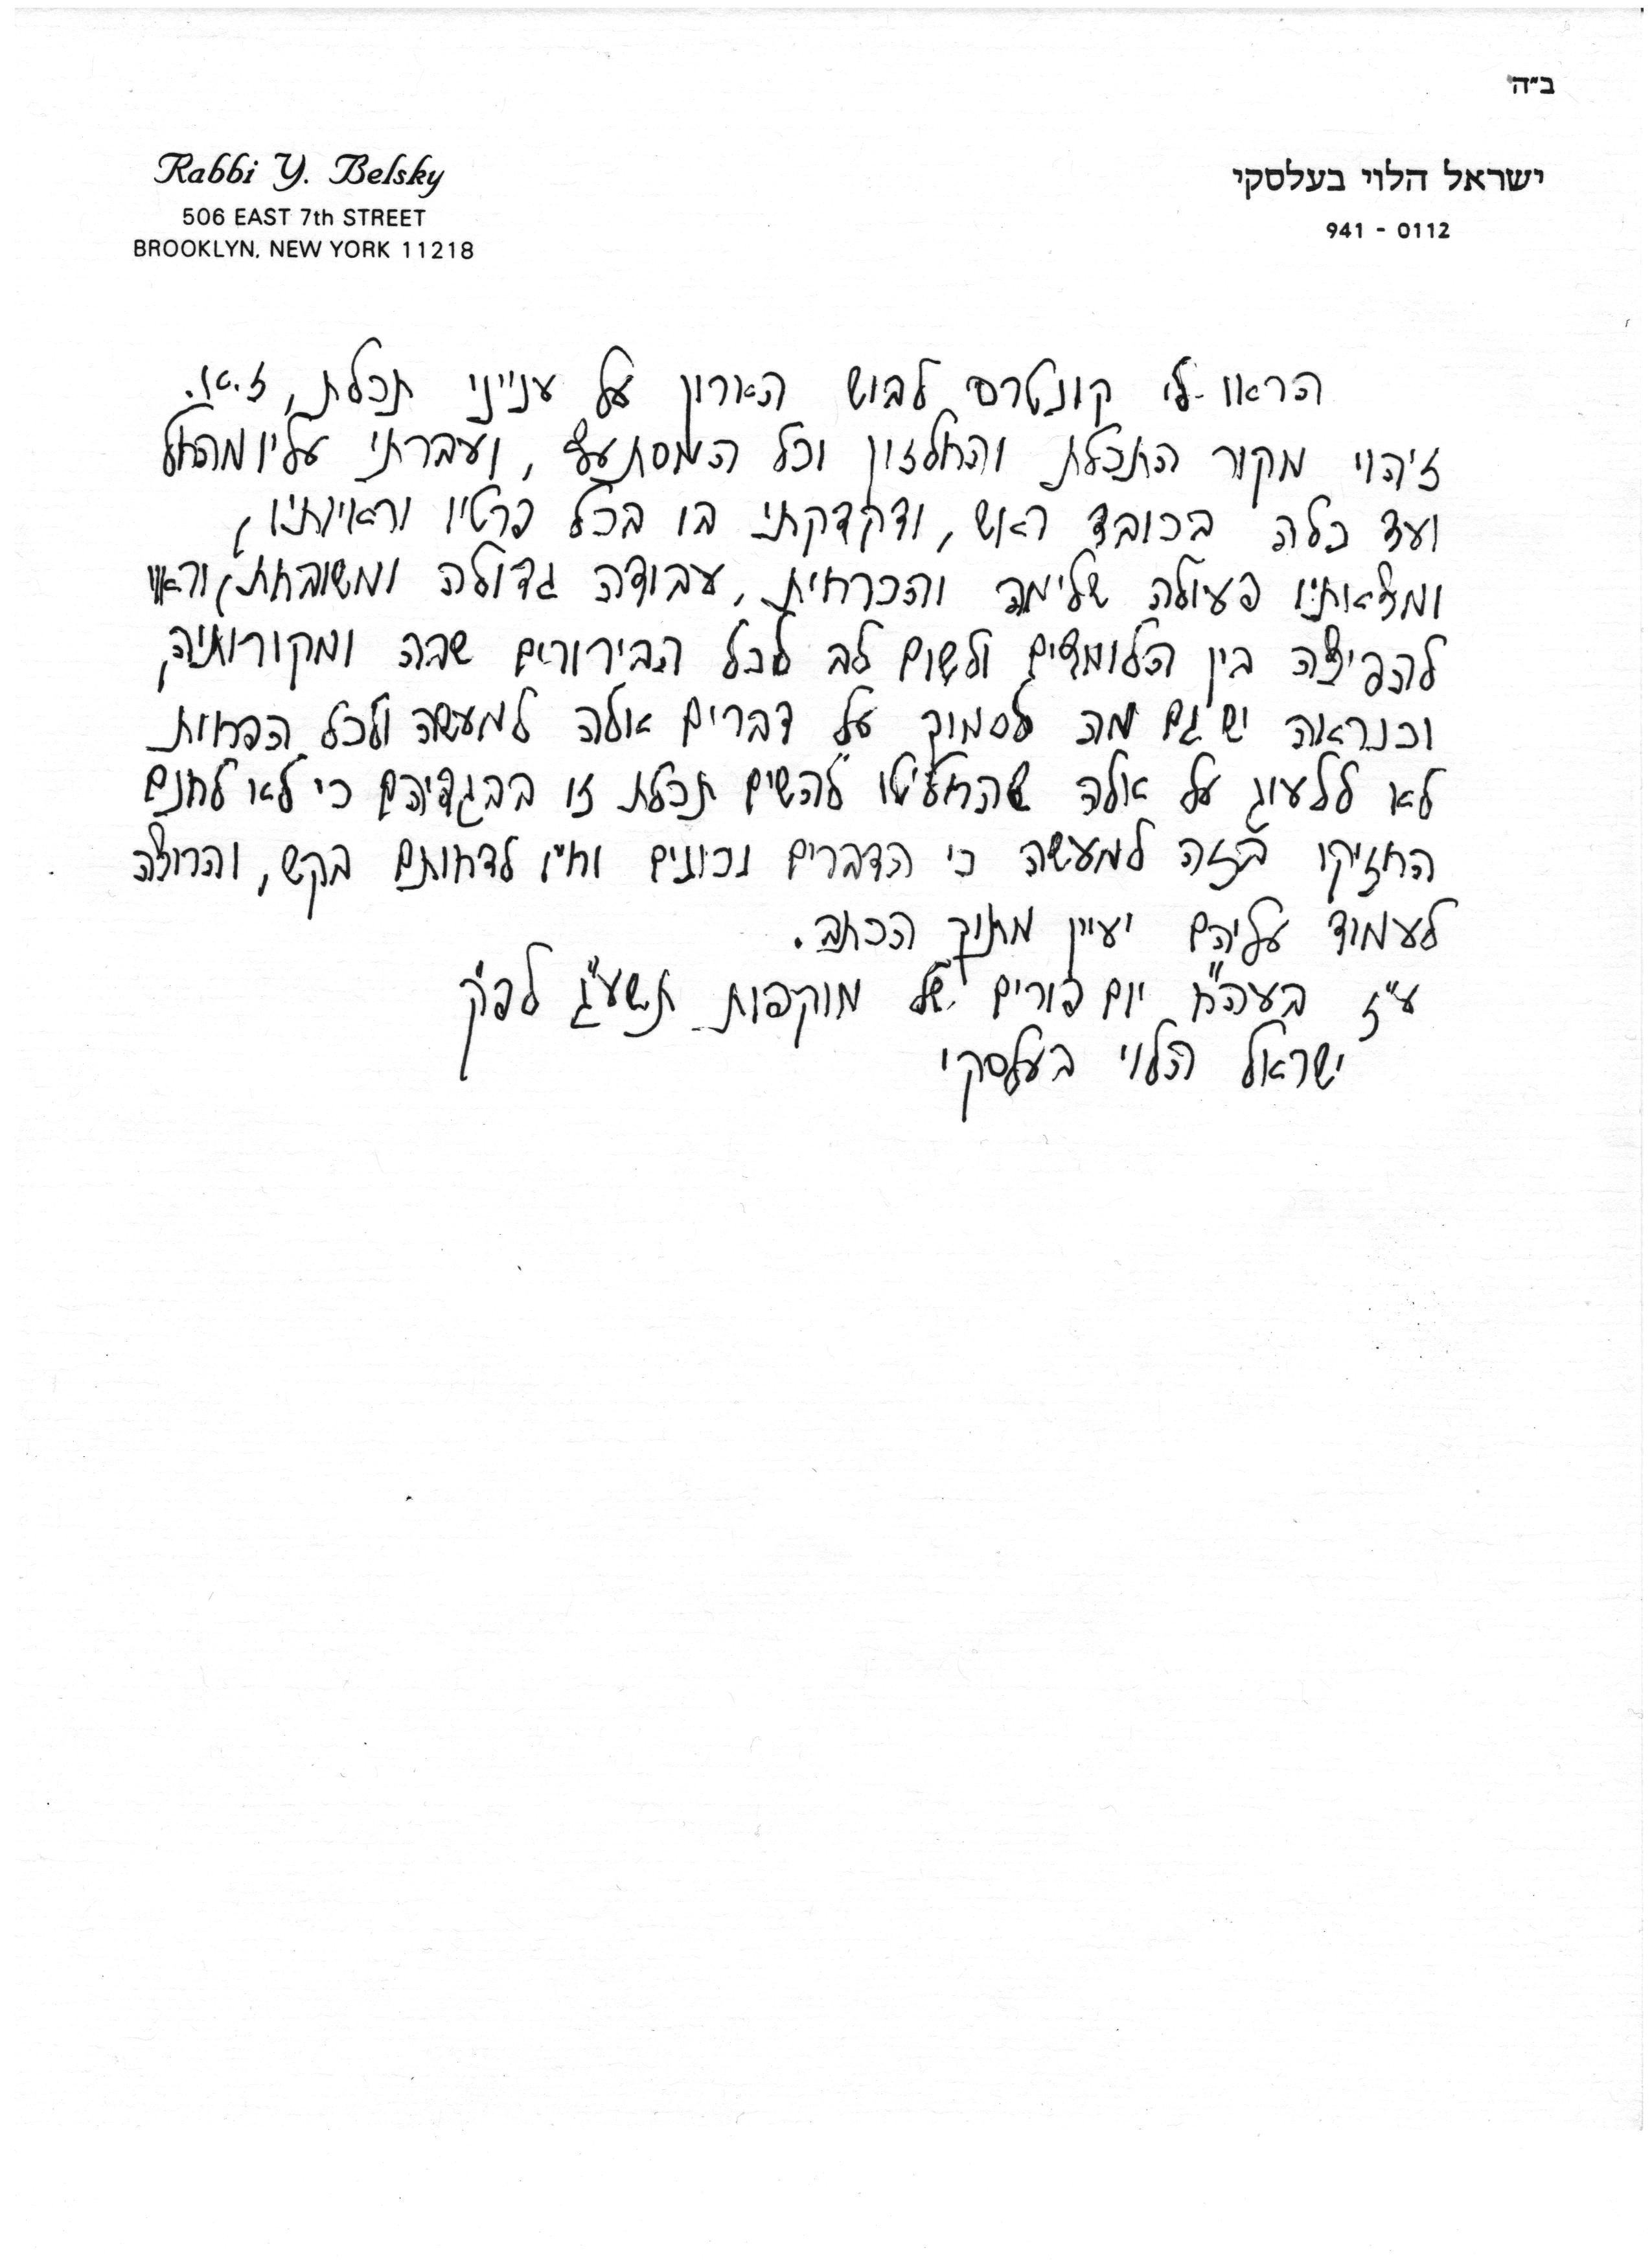 ב״ה
Rabbi Y. Belsky
506 EAST 7th STREET
BROOKLYN, NEW YORK 11218
ישראל הלוי בעלסקי
941 - 0112
הראו לי קונטרס לבוש הארון על ענייני תכלת, ז.א.
זיהוי מקור התכלת והחלזון וכל המסתעף, ועברתי עליו מהחל
ועד כלה בכובד ראש, ודקדקתי בו בכל פרטיו וראיותיו,
ומצאותיו פעולה שלימה והכרחית, עבודה גדולה ומשובחת, וראוי
להפיצה בין הלומדים ולשום לב לכל הבירורים שבה ומקורותיה,
וכנראה יש גם מה לסמוך על דברים אולה למעשה ולכל הפחות
לא ללעוג על אולה שהחליטו להשים תכלת זו בבגדיהם כי לא לחנם
החזיקו בזה למעשה כי הדברים נכונים וח״ו לדחותם בקש, והרוצה
לעמוד עליהם יעיין מתוך הכתב.
ע״ז בעה״ח יום פורים של מוקפות תשע״ג לפ״ק
ישראל הלוי בעלסקי